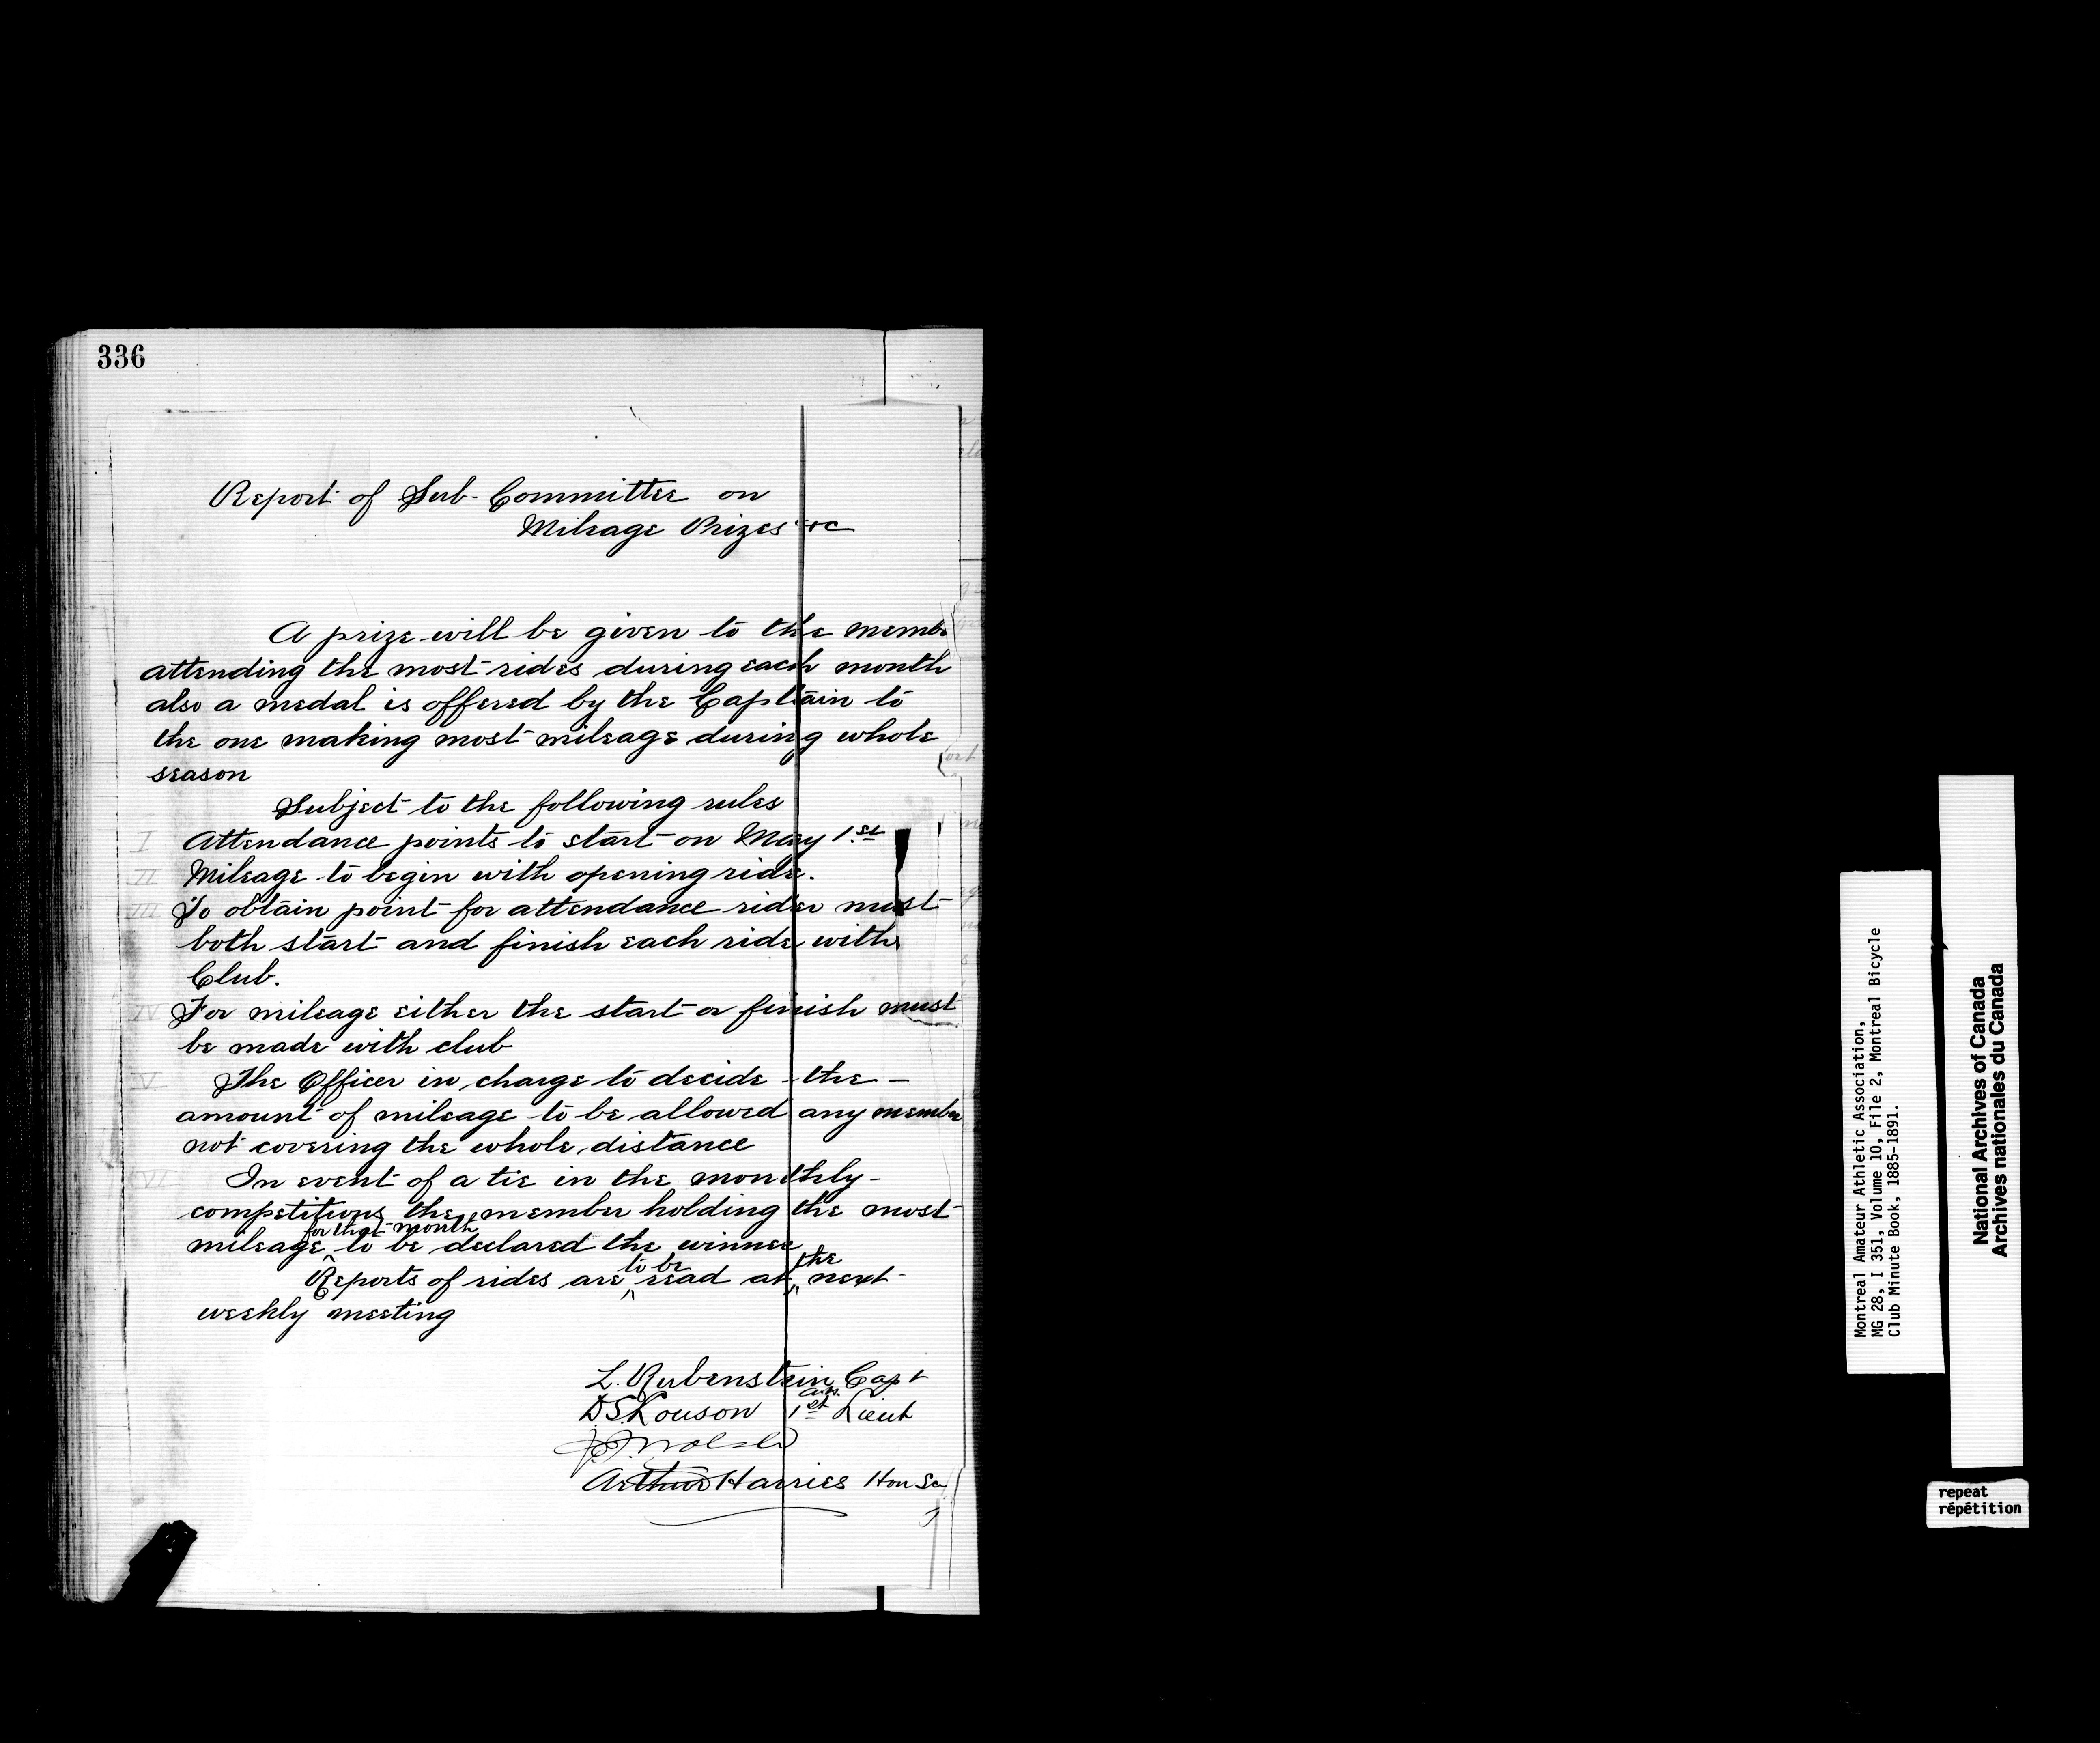 336
Report of Sub-Committee on
Mileage Prizes &c
A prize will be given to the membe
attending the most rides during each month
also a medal is offered by the Captain to
the one making most mileage during whole
season
Subject to the following rules
I Attendance points to start on May 1.st
II Mileage to begin with opening ride.
III To obtain point for attendance rider must
both start and finish each ride with
Club.
IV For mileage either the start or finish must
be made with club
V The Officer in charge to decide the
amount of mileage to be allowed any member
not covering the whole distance
VI In event of a tie in the monthly
competitions the member holding the most
for that month
mileage to be declared the winner
to be the
Reports of rides are read at next
weekly meeting
L. Rubenstein Capt
D.S. Louson 1st Lieut
Arthur Harries Hon Sec
Montreal Amateur Athletic Association,
MG 28, I 351, Volume 10, File 2, Montreal Bicycle
Club Minute Book, 1885-1891.
National Archives of Canada
Archives nationales du Canada
repeat
répétition